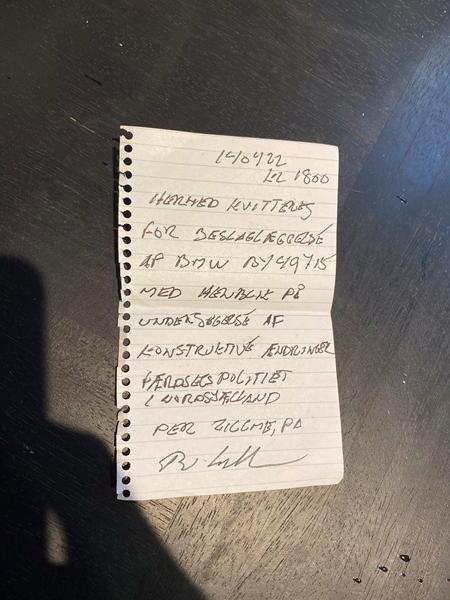 140422
KL 1800
HERMED KVITTERES
FOR BESLAGLÆGGELSE
AF BMW BY49715
MED HENBLIK PÅ
UNDERSØGELSE AF
KONSTRUKTIVE ÆNDRINGER
FÆRDSELSPOLITIET
NORDSJÆLLAND
PER